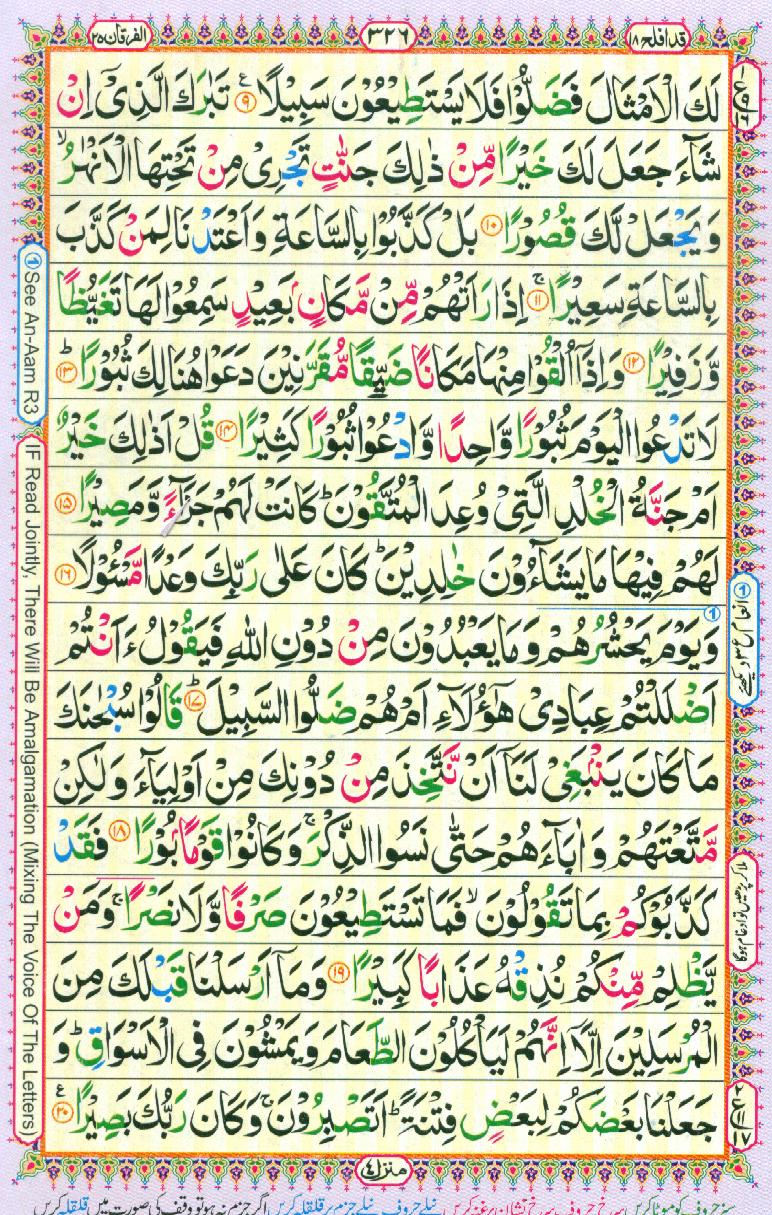 قد افلح ١٨
٣٢٦
الفرقان ٢٥
لَكَ الۡاَمۡثَالَ فَضَلُّوۡا فَلَا يَسۡتَطِيۡعُوۡنَ سَبِيۡلًا ﴿۹﴾ تَبٰرَكَ الَّذِىۡۤ اِنۡ
شَآءَ جَعَلَ لَكَ خَيۡرًا مِّنۡ ذٰلِكَ جَنّٰتٍ تَجۡرِىۡ مِنۡ تَحۡتِهَا الۡاَنۡهٰرُ ۙ
وَيَجۡعَلْ لَّكَ قُصُوۡرًا ﴿۱۰﴾ بَلۡ كَذَّبُوۡا بِالسَّاعَةِ وَاَعۡتَدۡنَا لِمَنۡ كَذَّبَ
بِالسَّاعَةِ سَعِيۡرًا ۚ ﴿۱۱﴾ اِذَا رَاَتۡهُمۡ مِّنۡ مَّكَانٍۢ بَعِيۡدٍ سَمِعُوۡا لَهَا تَغَيُّظًا
وَّزَفِيۡرًا ﴿۱۲﴾ وَاِذَاۤ اُلۡقُوۡا مِنۡهَا مَكَانًا ضَيِّقًا مُّقَرَّنِيۡنَ دَعَوۡا هُنَالِكَ ثُبُوۡرًا ؕ ﴿۱۳﴾
لَا تَدۡعُوا الۡيَوۡمَ ثُبُوۡرًا وَّاحِدًا وَّادۡعُوۡا ثُبُوۡرًا كَثِيۡرًا ﴿۱۴﴾ قُلۡ اَذٰلِكَ خَيۡرٌ
اَمۡ جَنَّةُ الۡخُـلۡدِ الَّتِىۡ وُعِدَ الۡمُتَّقُوۡنَ ؕ كَانَتۡ لَهُمۡ جَزَآءً وَّمَصِيۡرًا ﴿۱۵﴾
لَهُمۡ فِيۡهَا مَا يَشَآءُوۡنَ خٰلِدِيۡنَ ؕ كَانَ عَلٰى رَبِّكَ وَعۡدًا مَّسۡـُٔوۡلًا ﴿۱۶﴾
وَيَوۡمَ يَحۡشُرُهُمۡ وَمَا يَعۡبُدُوۡنَ مِنۡ دُوۡنِ اللّٰهِ فَيَقُوۡلُ ءَاَنۡتُمۡ
اَضۡلَلۡتُمۡ عِبَادِىۡ هٰٓؤُلَآءِ اَمۡ هُمۡ ضَلُّوا السَّبِيۡلَ ؕ ﴿۱۷﴾ قَالُوۡا سُبۡحٰنَكَ
مَا كَانَ يَنۢۡبَغِىۡ لَنَاۤ اَنۡ نَّـتَّخِذَ مِنۡ دُوۡنِكَ مِنۡ اَوۡلِيَآءَ وَلٰـكِنۡ
مَّتَّعۡتَهُمۡ وَاٰبَآءَهُمۡ حَتّٰى نَسُوا الذِّكۡرَ ۚ وَكَانُوۡا قَوۡمًۢا بُوۡرًا ﴿۱۸﴾ فَقَدۡ
كَذَّبُوۡكُمۡ بِمَا تَقُوۡلُوۡنَ ۙ فَمَا تَسۡتَطِيۡعُوۡنَ صَرۡفًا وَّلَا نَصۡرًا ۚ وَمَنۡ
يَّظۡلِمۡ مِّنۡكُمۡ نُذِقۡهُ عَذَابًا كَبِيۡرًا ﴿۱۹﴾ وَمَاۤ اَرۡسَلۡنَا قَبۡلَكَ مِنَ
الۡمُرۡسَلِيۡنَ اِلَّاۤ اِنَّهُمۡ لَيَاۡكُلُوۡنَ الطَّعَامَ وَيَمۡشُوۡنَ فِى الۡاَسۡوَاقِ ؕ وَ
جَعَلۡنَا بَعۡضَكُمۡ لِبَعۡضٍ فِتۡنَةً ؕ اَتَصۡبِرُوۡنَ ۚ وَكَانَ رَبُّكَ بَصِيۡرًا ﴿۲۰﴾
① See An-Aam R3
IF Read Jointly, There Will Be Amalgamation (Mixing The Voice Of The Letters)
منزل ٤
سبز حروف کو موٹا کریں سرخ حروف سرخ نشان پر غنہ کریں نیلے حروف نیلے جزم پر قلقلہ کریں اگر جزم نہ ہو تو وقف کی صورت میں قلقلہ کریں